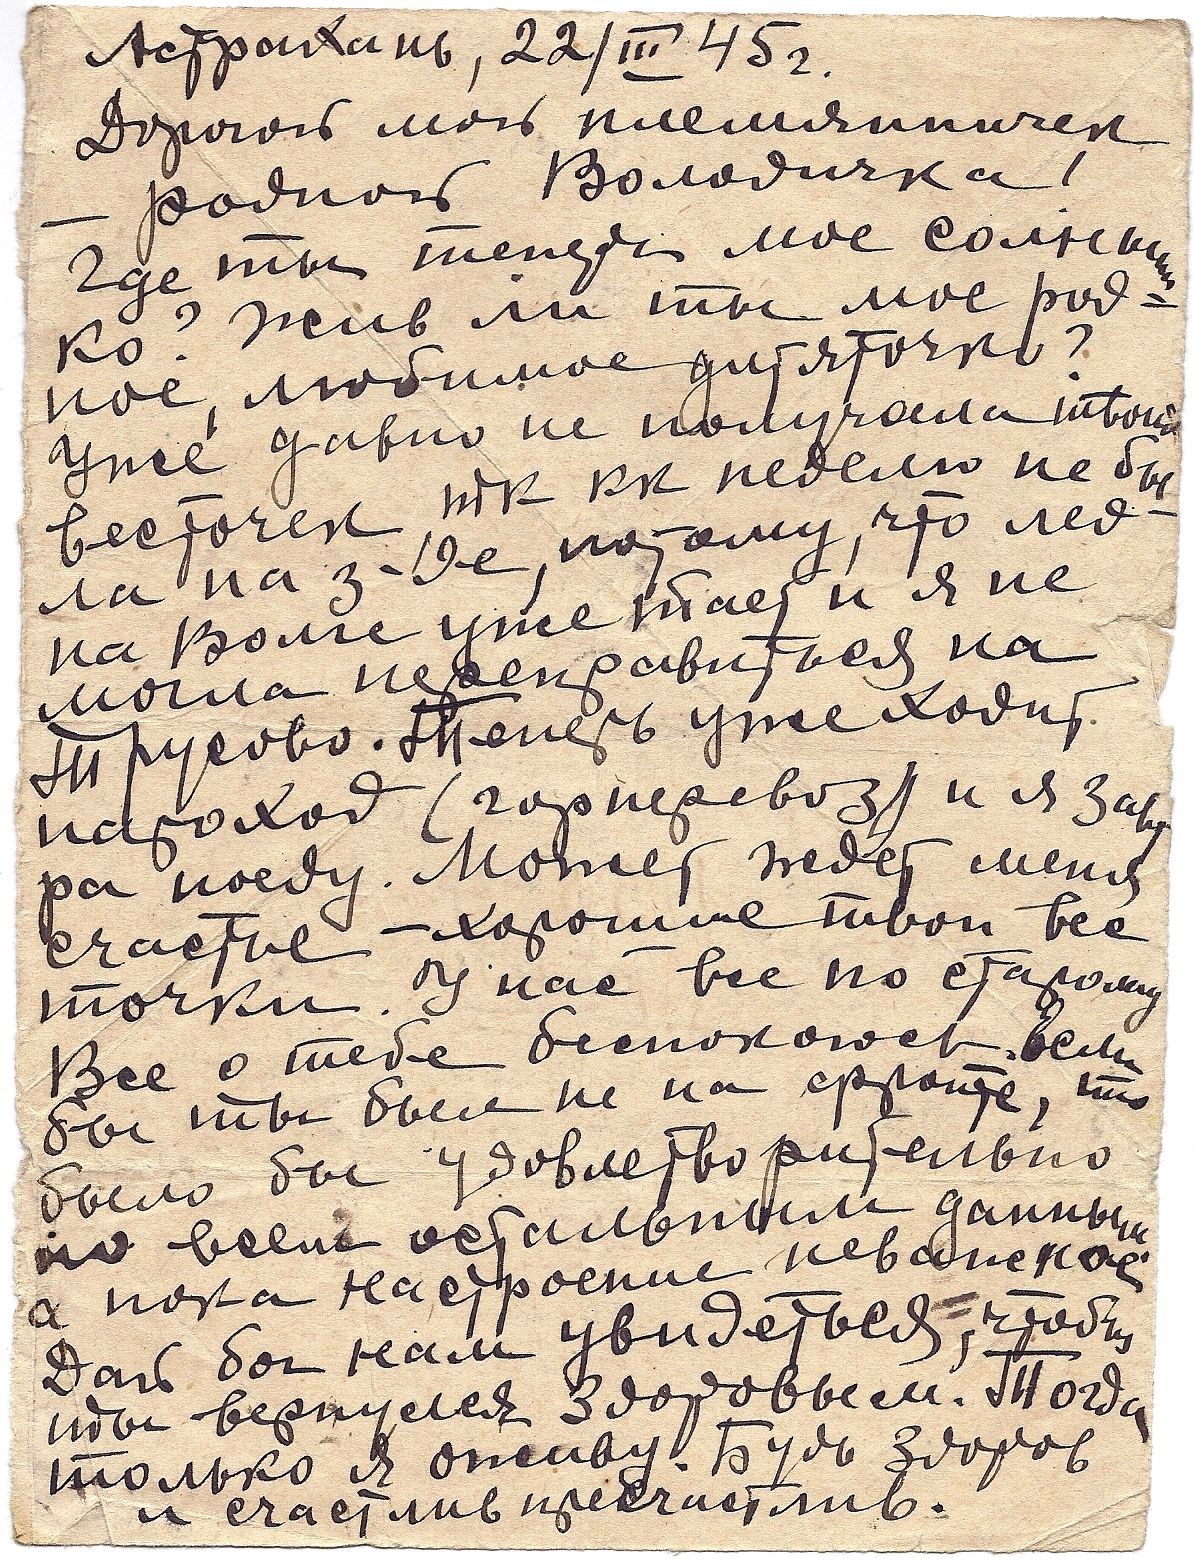 Астрахань, 22/III 45 г.
Дорогой мой племянничек
— родной Володичка!
Где ты теперь мое солныш
ко? Жив ли ты мое род=
ное, любимое дитяточко?
Уже давно не получала твоих
весточек, тк кк неделю не бы
ла на з-де, потому, что лед-
на Волге уже тает и я не
могла переправиться на
Трусово. Теперь уже ходит
пароход (горперевоз) и я завт
ра поеду. Может ждет меня
счастье — хорошие твои вес
точки. У нас все по старому
Все о тебе беспокоюсь. Если
бы ты был не на фронте, то
было бы удовлетворительно
по всем остальным данным
а пока настроение неважное
Дай бог нам увидеться, чтобы
ты вернулся здоровым. Тогда
только я оживу. Будь здоров
и счастлив пресчастлив.